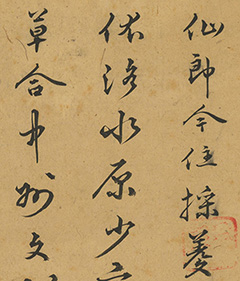 仙郎今住採菱
依洛水原少
草合中州文